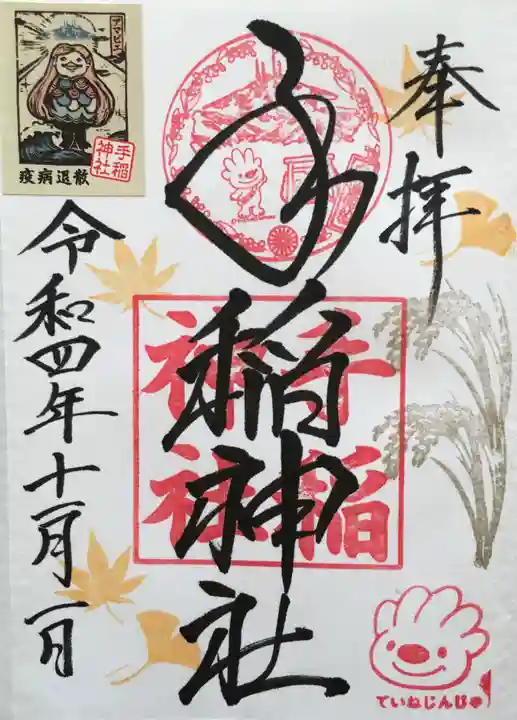 奉拝
手稲神社
手稲
神社
令和四年十一月一日
アマビエ
手稲
神社
疫病退散
ていねじんじゃ